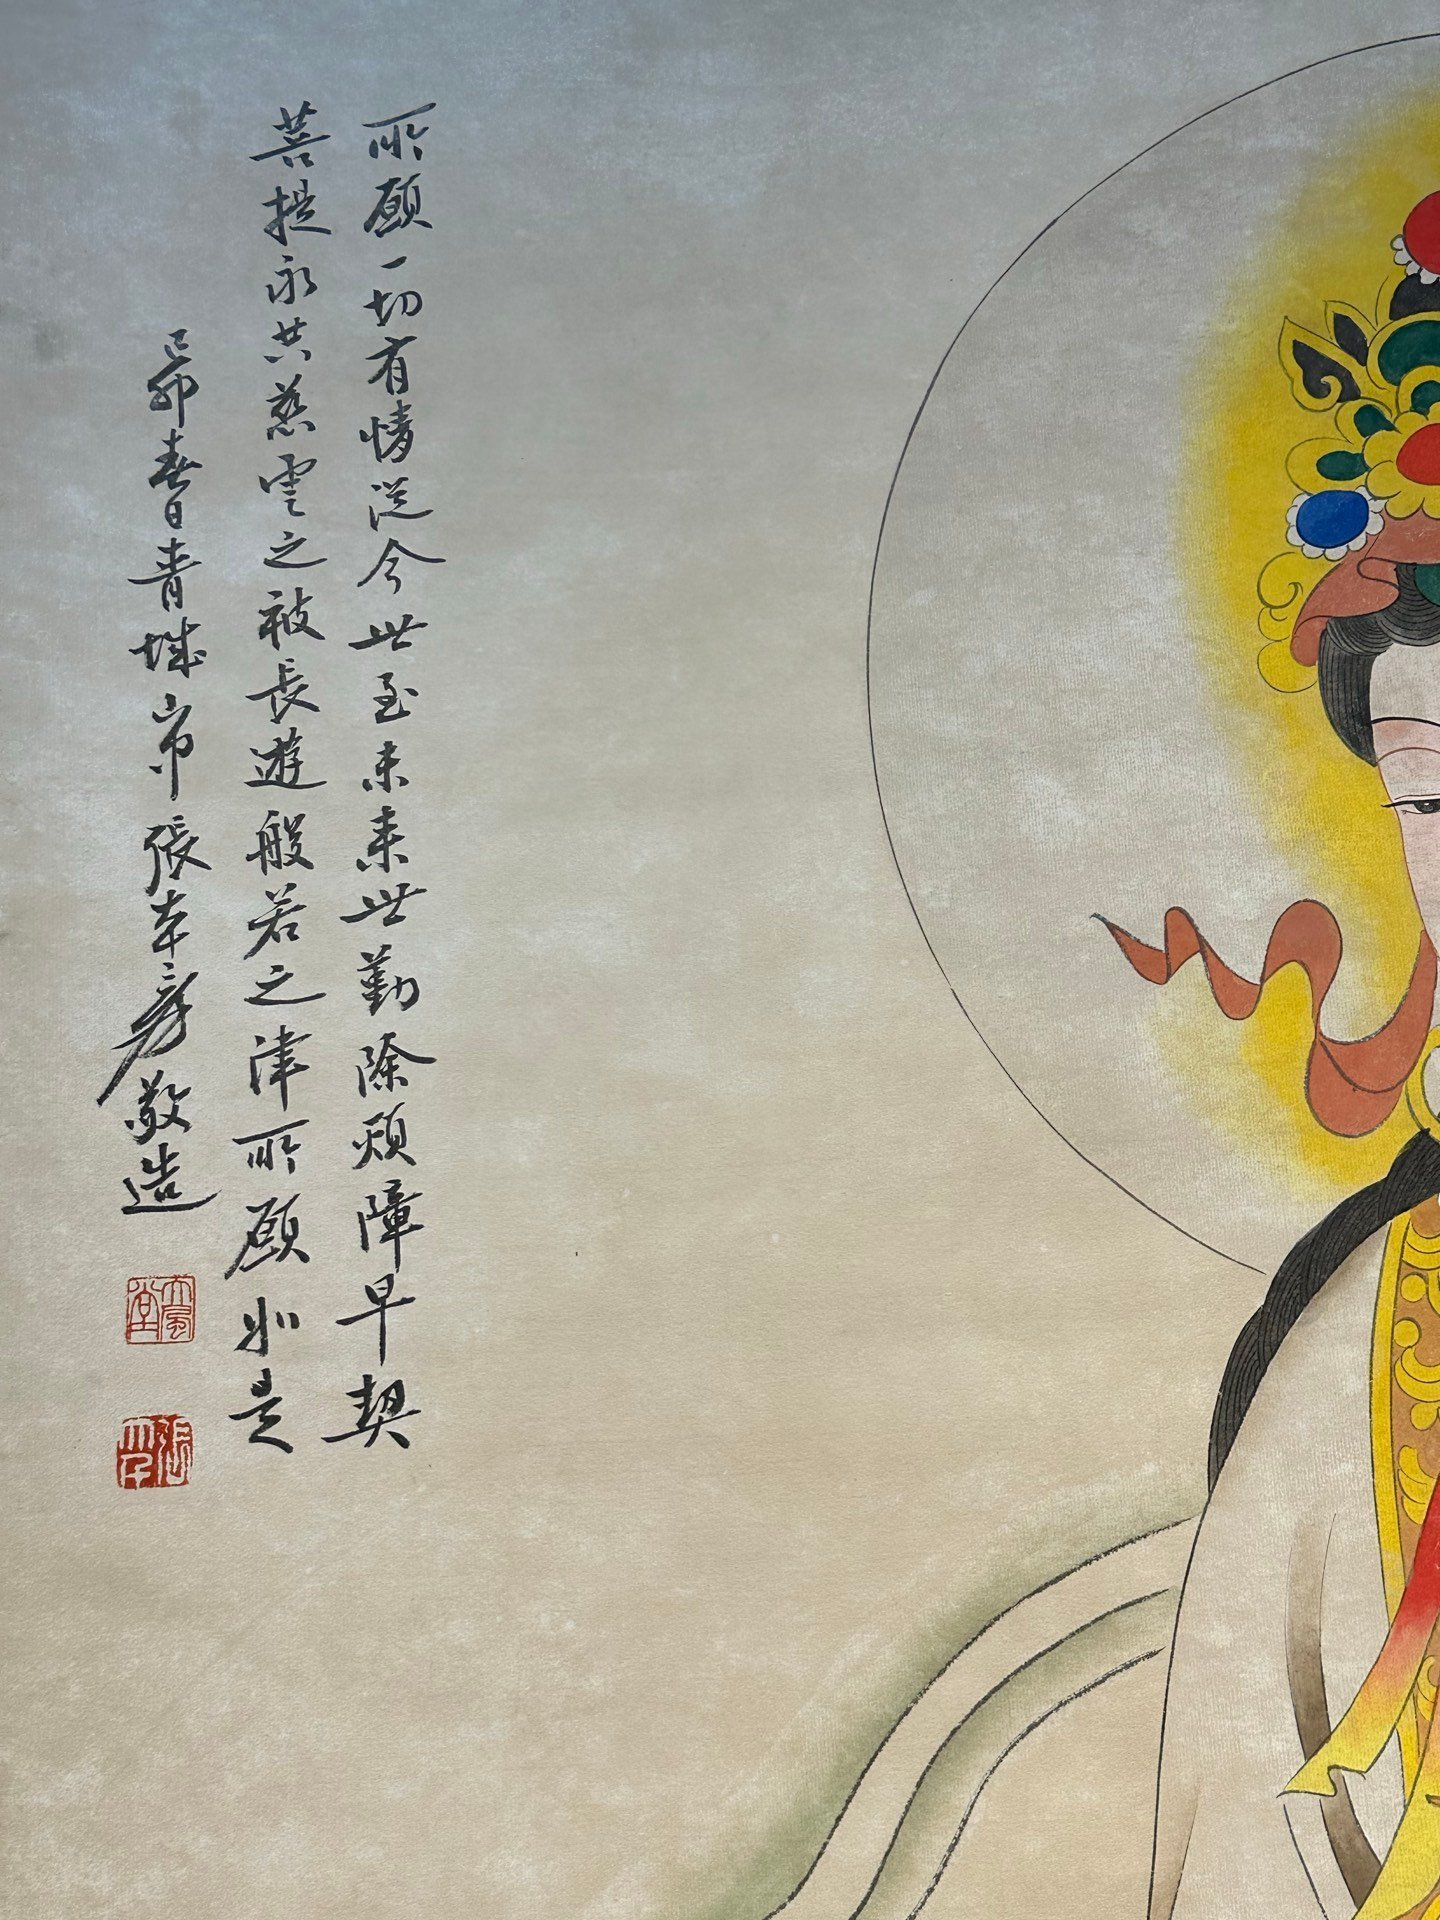 所願一切有情從今世至未來世勤除煩障早契
菩提永共慈雲之被長遊般若之津所願如是
己卯春日青城弟張大千爰敬造
大風堂
張大千